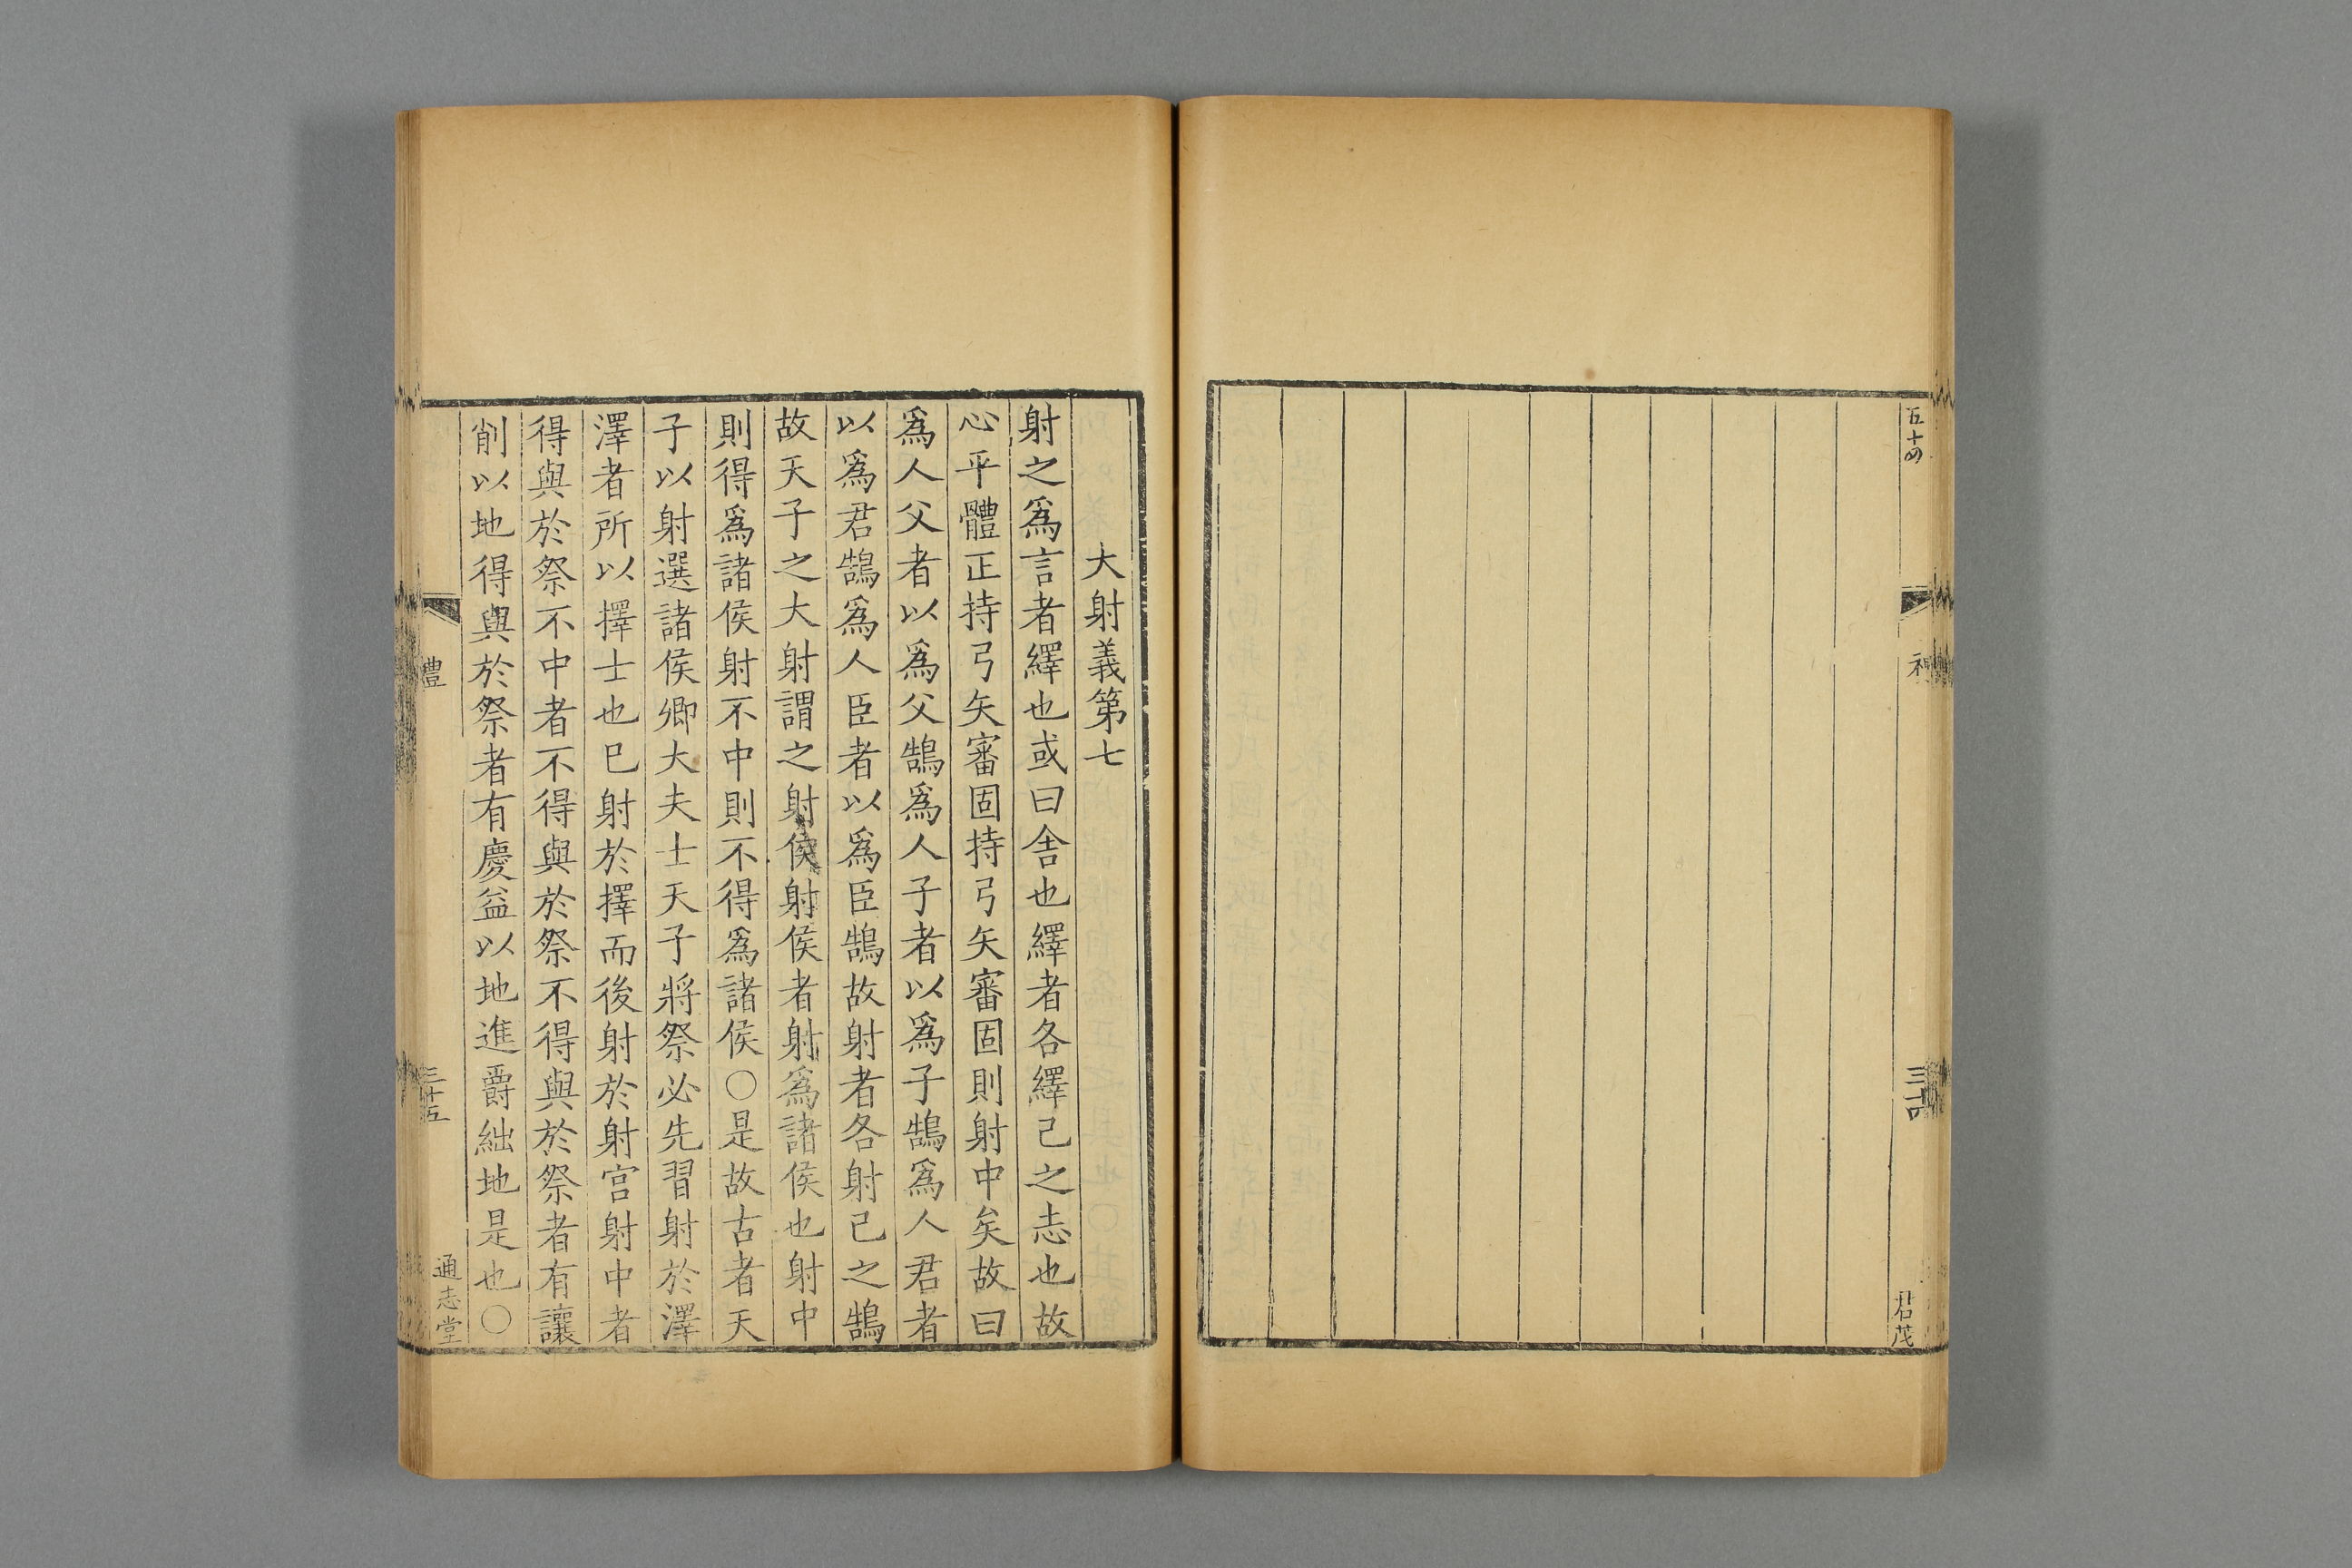 五十四
三十四
君茂
大射義第七
射之爲言者繹也或曰舍也繹者各繹己之志也故
心平體正持弓矢審固持弓矢審固則射中矣故曰
爲人父者以爲父鵠爲人子者以爲子鵠爲人君者
以爲君鵠爲人臣者以爲臣鵠故射者各射己之鵠
故天子之大射謂之射侯射侯者射爲諸侯也射中
則得爲諸侯射不中則不得爲諸侯〇是故古者天
子以射選諸侯卿大夫士天子將祭必先習射於澤
澤者所以擇士也巳射於擇而後射於射宮射中者
得與於祭不中者不得與於祭不得與於祭者有讓
削以地得與於祭者有慶益以地進爵絀地是也〇
豊
三十五
通志堂